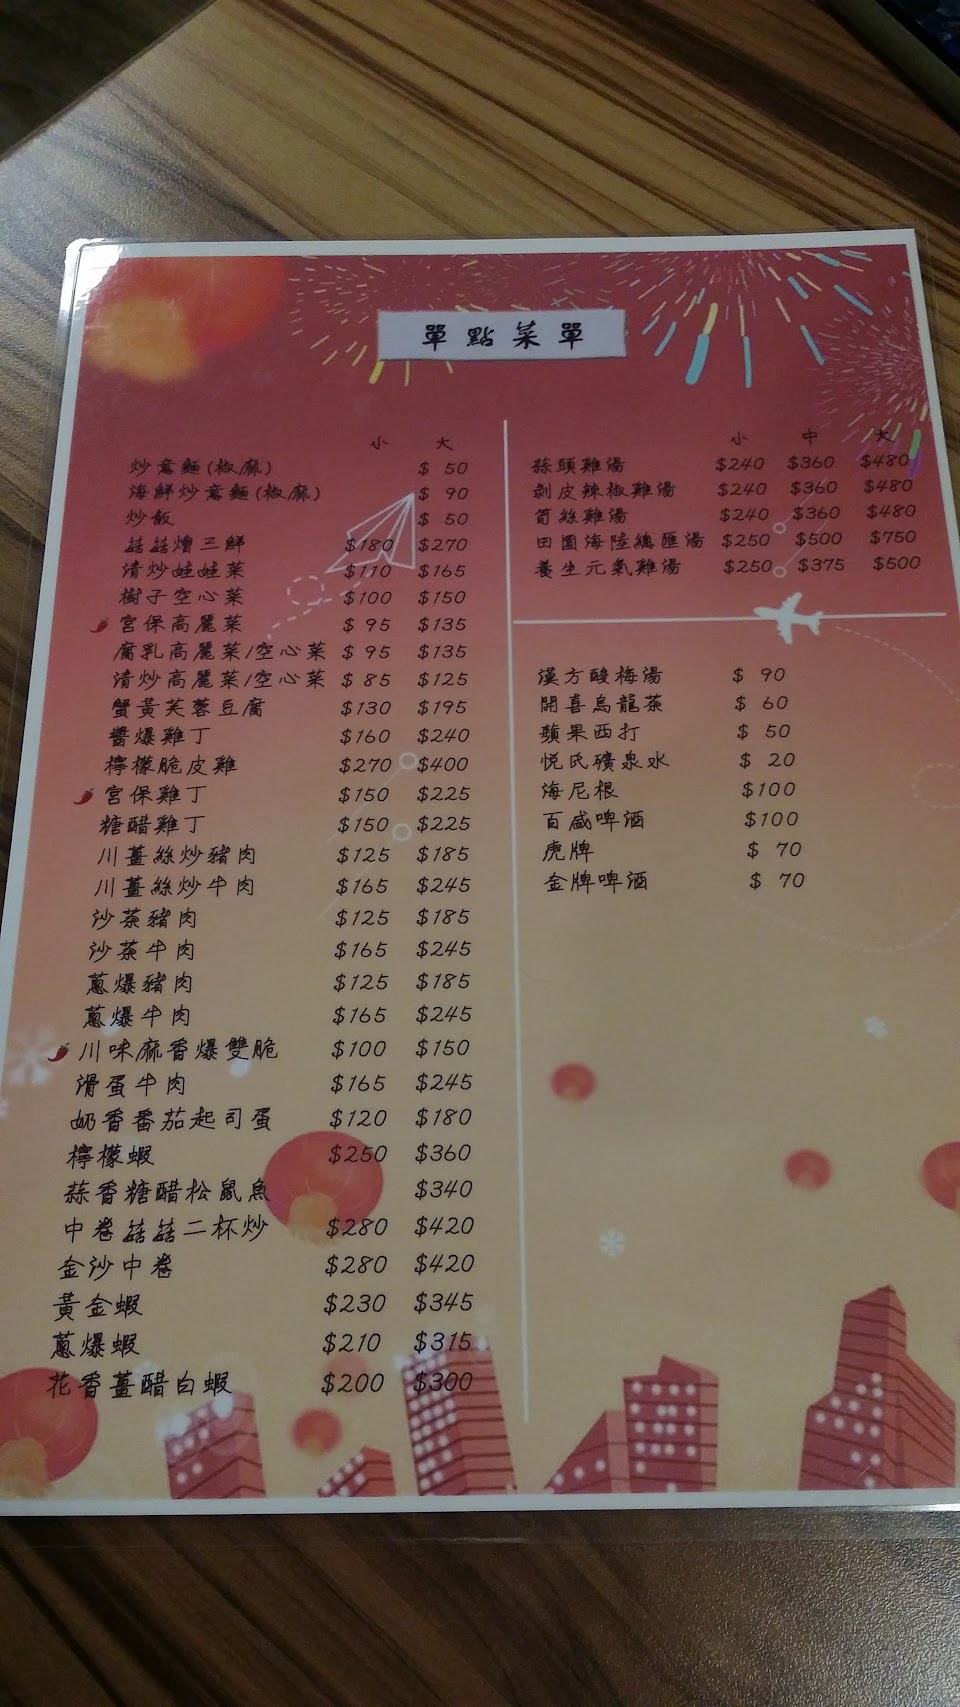 單點菜單
小 大
炒意麵(椒麻) $ 50
海鮮炒意麵(椒麻) $ 90
炒飯 $ 50
菇菇燴三鮮 $180 $270
清炒娃娃菜 $110 $165
樹子空心菜 $100 $150
宮保高麗菜 $ 95 $135
腐乳高麗菜/空心菜 $ 95 $135
清炒高麗菜/空心菜 $ 85 $125
蟹黃芙蓉豆腐 $130 $195
醬爆雞丁 $160 $240
檸檬脆皮雞 $270 $400
宮保雞丁 $150 $225
糖醋雞丁 $150 $225
川薑絲炒豬肉 $125 $185
川薑絲炒牛肉 $165 $245
沙茶豬肉 $125 $185
沙茶牛肉 $165 $245
蔥爆豬肉 $125 $185
蔥爆牛肉 $165 $245
川味麻香爆雙脆 $100 $150
滑蛋牛肉 $165 $245
奶香番茄起司蛋 $120 $180
檸檬蝦 $250 $360
蒜香糖醋松鼠魚 $340
中卷菇菇二杯炒 $280 $420
金沙中卷 $280 $420
黃金蝦 $230 $345
蔥爆蝦 $210 $315
花香薑醋白蝦 $200 $300
小 中 大
蒜頭雞湯 $240 $360 $480
剝皮辣椒雞湯 $240 $360 $480
筍絲雞湯 $240 $360 $480
田園海陸總匯湯 $250 $500 $750
養生元氣雞湯 $250 $375 $500
漢方酸梅湯 $ 90
開喜烏龍茶 $ 60
蘋果西打 $ 50
悅氏礦泉水 $ 20
海尼根 $100
百威啤酒 $100
虎牌 $ 70
金牌啤酒 $ 70